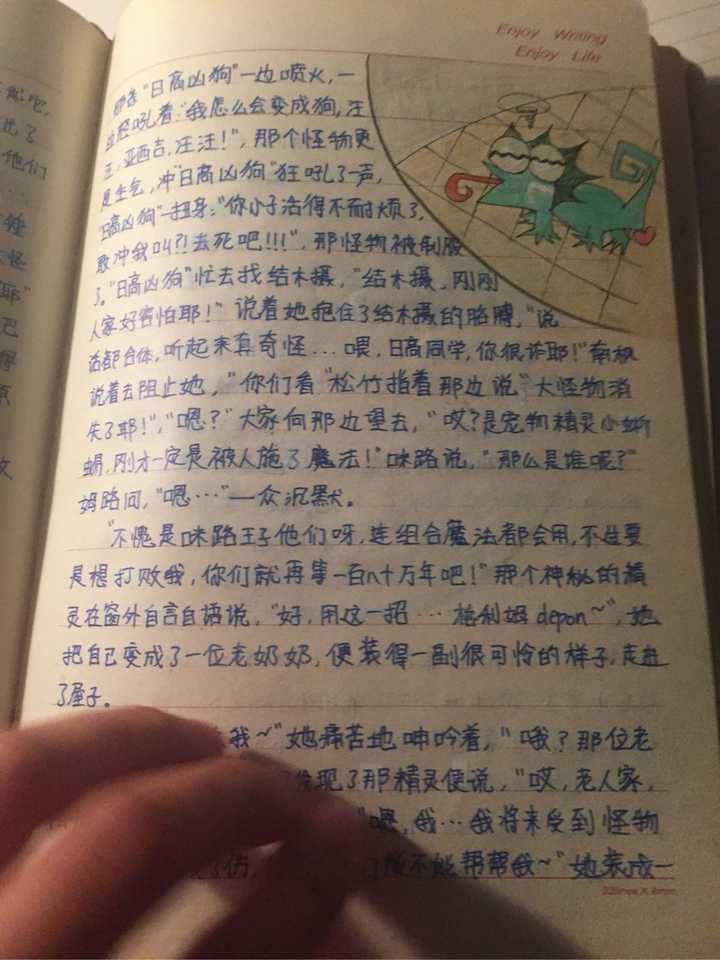 Enjoy Writing
Enjoy Life
"日高凶狗"一边喷火,一
吼着:"我怎么会变成狗,汪
汪,亚西吉,汪汪!",那个怪物更
是生气,冲"日高凶狗"狂吼了一声,
"日高凶狗"一扭身:"你小子活得不耐烦了,
敢冲我叫?!去死吧!!!",那怪物被制服
了。"日高凶狗"忙去找结木摄,"结木摄,刚刚
人家好害怕耶!"说着她抱住了结木摄的胳膊,"说
话都合体,听起来真奇怪...喂,日高同学,你很诈耶!"南枫
说着去阻止她,"你们看"松竹指着那边说"大怪物消
失了耶!","嗯?"大家向那边望去,"哎?是宠物精灵小蜥
蜴,刚才一定是被人施了魔法!"咪路说,"那么是谁呢?"
姆路问,"嗯…"一众沉默。
"不愧是咪路王子他们呀,连组合魔法都会用,不过要
是想打败我,你们就再等一百n十万年吧!"那个神秘的精
灵在窗外自言自语说,"好,用这一招…格利姆depon~",她
把自己变成了一位老奶奶,便装得一副很可怜的样子,走进
了屋子。
我~"她痛苦地呻吟着,"哦?那位老
发现了那精灵便说,"哎,老人家,
"嗯,我…我将来受到怪物
了伤,能不能帮帮我~"她装成一